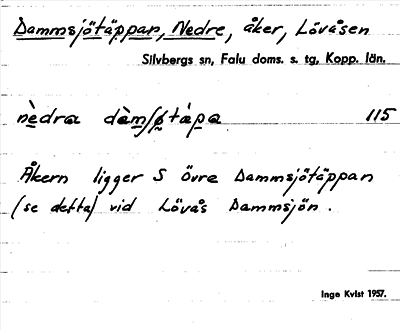 Dammsjötäppan, Nedre, åker, Lövåsen
Silvbergs sn, Falu doms. s. tg, Kopp. län.
nèdra dàmʃø̀tápa 115
Åkern ligger S Övre Dammsjötäppan
(se detta) vid Lövås Dammsjön.
Inge Kvist 1957.